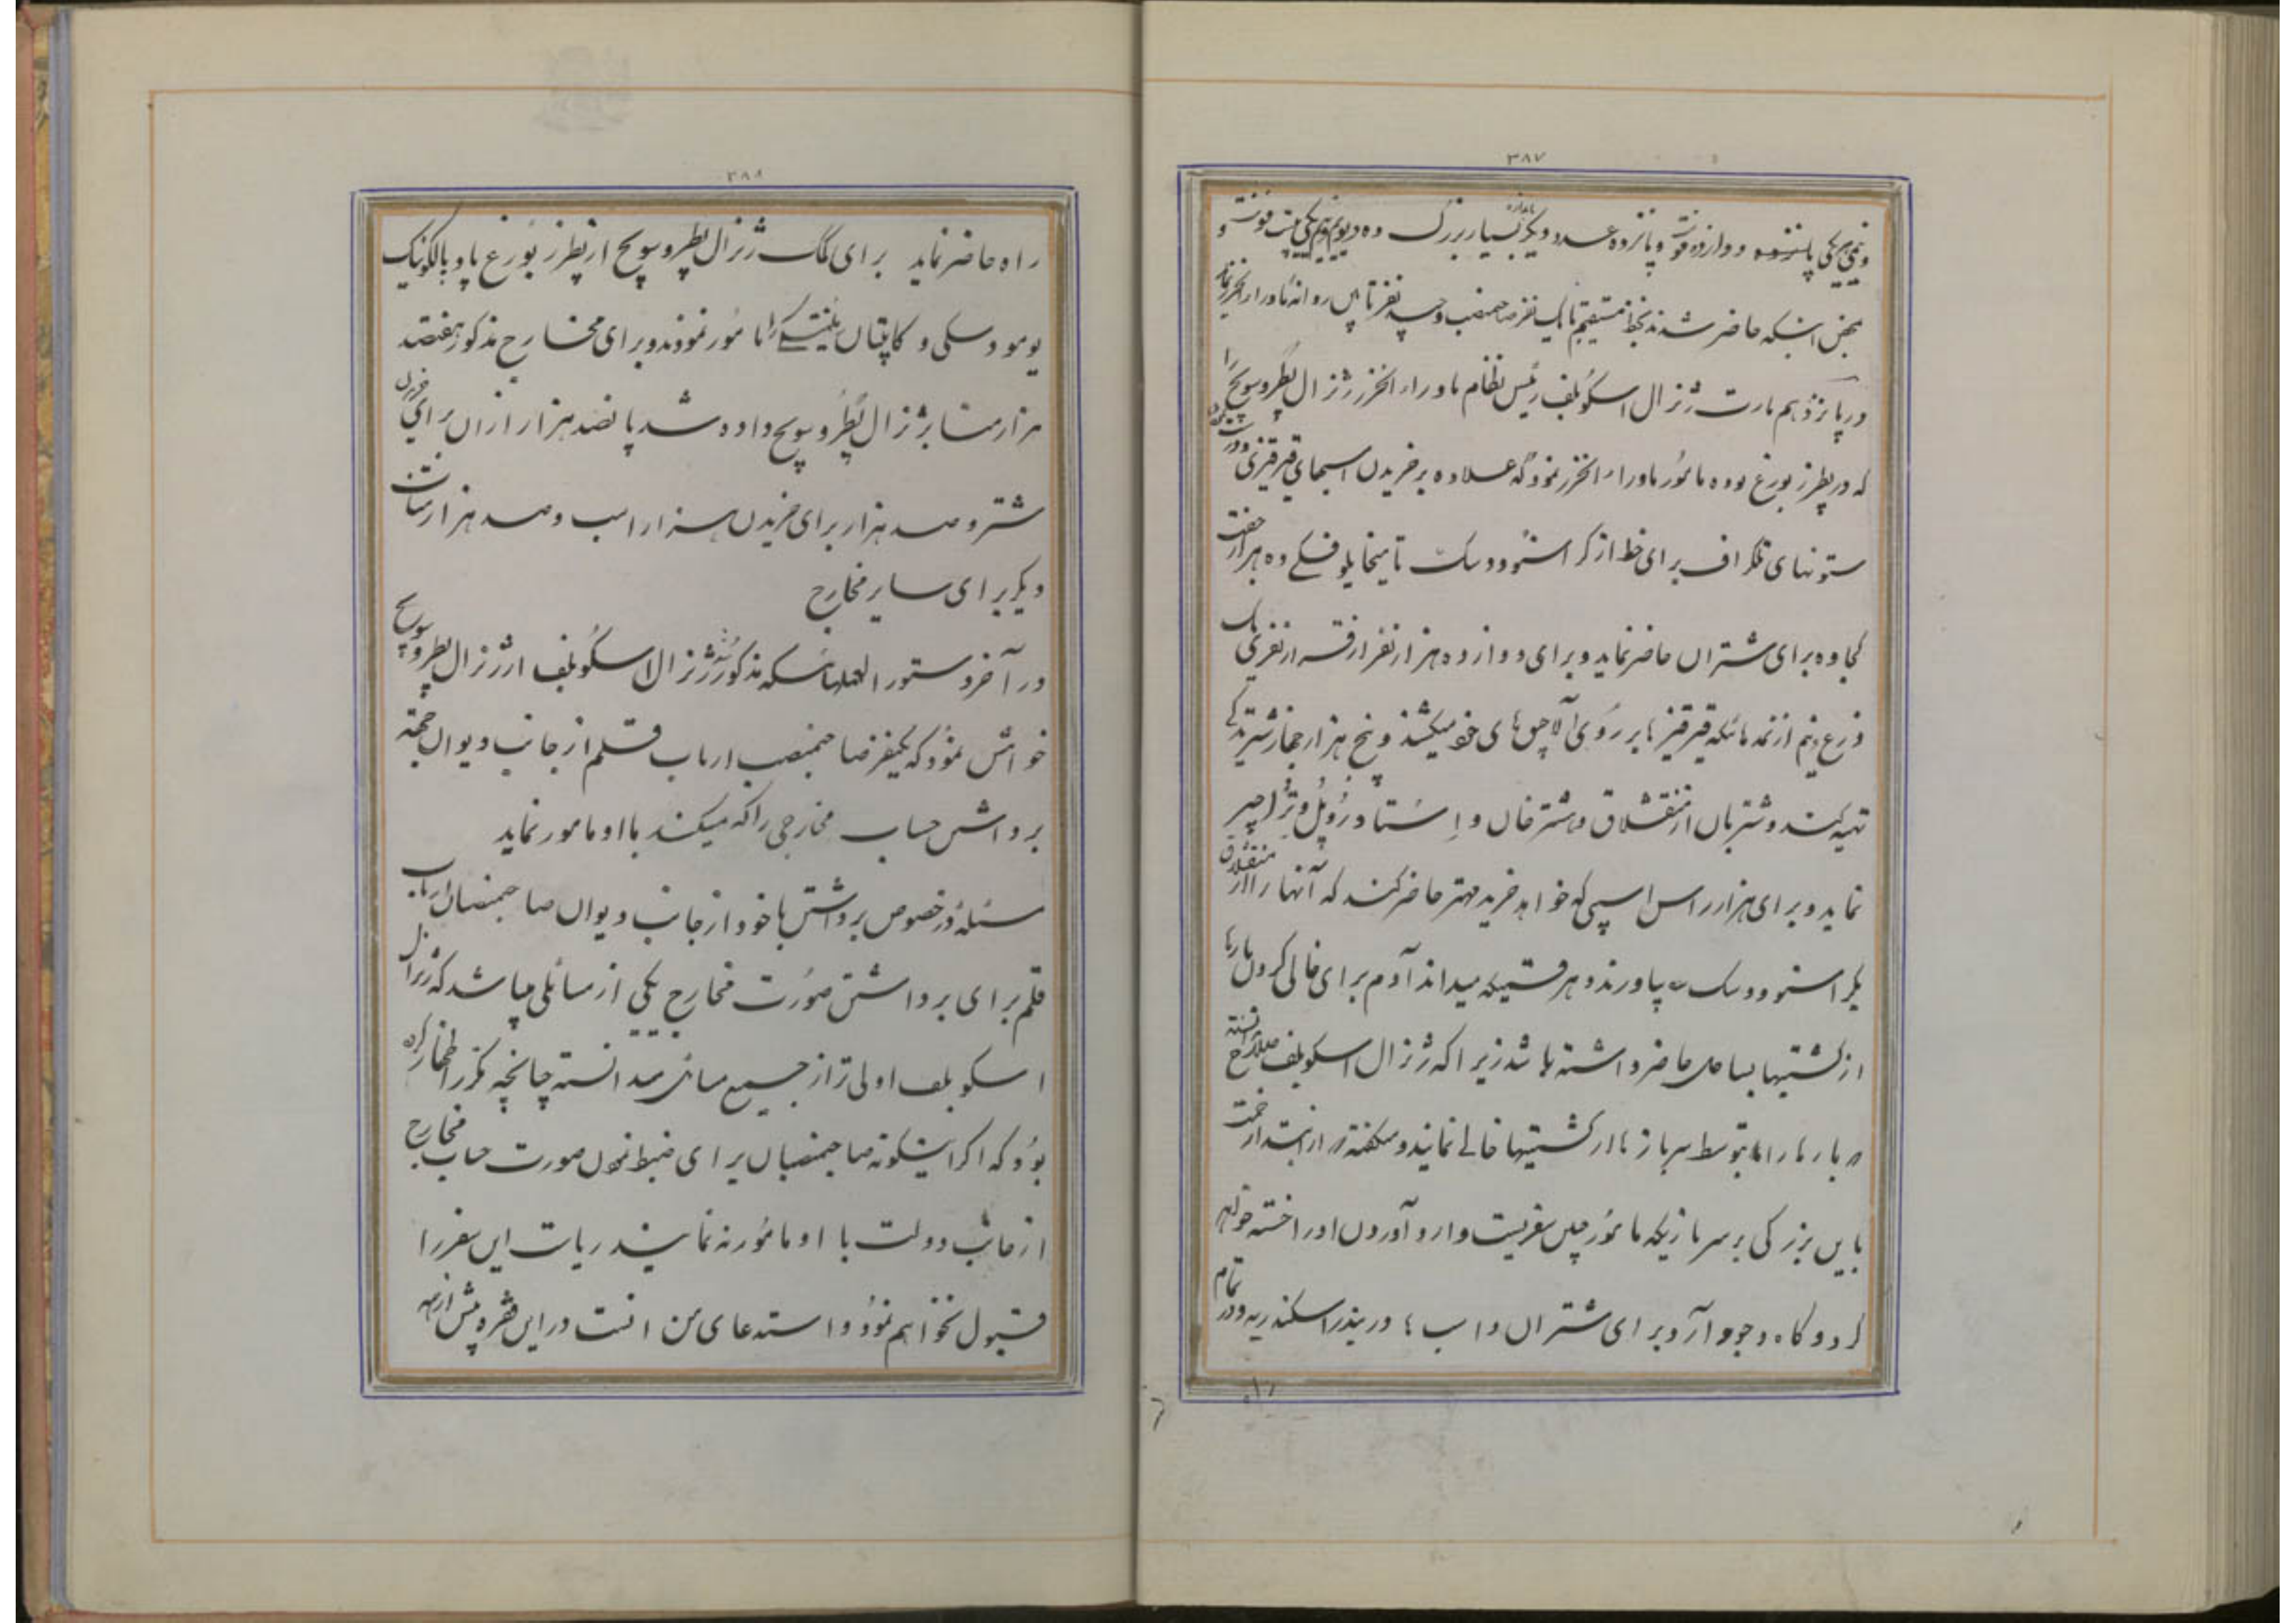 ۳۸۷
و نیمی هر یکی دوازده فوت و پانزده عدد دیگر بسیار بزرگ
محض اینکه حاضر شدند بخط مستقیم با یک نفر صاحبمنصب و چند نفر تابین روانهٔ ماوراء الخزر نماید
در پانزدهم مارت ژنرال اسکوبلف رئیس نظام ماوراء الخزر ژنرال پطروسویچ را
که در پطرزبورغ بوده مأمور ماوراء الخزر نمود که علاوه بر خریدن اسبهای قیرقیزی
ستونهای تلگراف برای خط از کراسنوودسک تا میخایلوفسکی ده هزار جفت
کجاوه برای شتران حاضر نماید و برای دوازده هزار نفر از قرار نفری یک
ذرع و نیم از نمد هائیکه قیرقیزها بر روی آلاچق های خود میکشند و پنج هزار جهاز شتر ترکی
تهیه کند و شتربان از منقشلاق و
نماید و برای هزار راس اسبی که خواهد خرید مهتر حاضر کند که آنها را از منقشلاق
بکراسنوودسک بیاورند و هر قسمیکه میداند آدم برای خالی کردن بارها
از کشتیها بساحل حاضر داشته باشد زیرا که ژنرال اسکوبلف صلاح ندانسته
بارها را بتوسط سربازها از کشتیها خالی نمایند و میگفته در ابتدا زحمت
باین بزرگی بر سربازیکه مأمور چنین سفریست وارد آوردن او را خسته خواهد
کرد و کاه و جو و آرد برای شتران و اسب در بندر اسکندریه و در تمام
راه
۳۸۸
راه حاضر نماید برای کمک ژنرال پطروسویچ از پطرزبورغ پادپالکونیک
پومودسکی و کاپتان را مأمور نمودند و برای مخارج مذکور هفتصد
هزار منات بژنرال پطروسویچ داده شد پانصد هزار از آن برای خریدن
شتر و صد هزار برای خریدن هزار اسب و صد هزار منات
دیگر برای سایر مخارج
در آخر دستورالعملهائیکه مذکور شد ژنرال اسکوبلف از ژنرال پطروسویچ
خواهش نمود که یکنفر صاحبمنصب ارباب قلم از جانب دیوان بجهة
برداشتن حساب مخارجی را که میکند با او مأمور نماید
مسئلهٔ در خصوص برداشتن با خود از جانب دیوان صاحبمنصبان ارباب
قلم برای برداشتن صورت مخارج یکی از مسائلی میباشد که ژنرال
اسکوبلف اولی تر از جمیع مسائل میدانسته چنانچه مکرر اظهار کرده
بود که اگر اینگونه صاحبمنصبان برای ضبط نمودن صورت حساب مخارج
از جانب دولت با او مأمور نه نمایند ریاست این سفر را
قبول نخواهم نمود و استدعای من اینست در این فقره پیش از همه